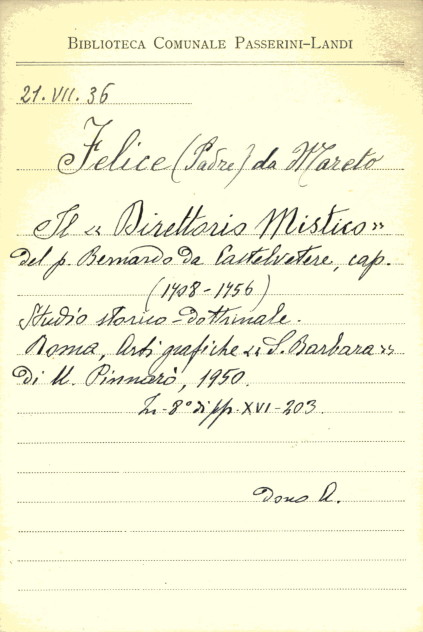 BIBLIOTECA COMUNALE PASSERINI-LANDI
21. VII. 36
Felice (Padre) da Mareto
Il « Direttorio Mistico »
del p. Bernardo da Castelvetere, cap.
(1708-1756)
Studio storico-dottrinale.
Roma, Arti grafiche « S. Barbara »
di U. Pinnarò, 1950.
In-8° di pp. XVI-203.
dono A.